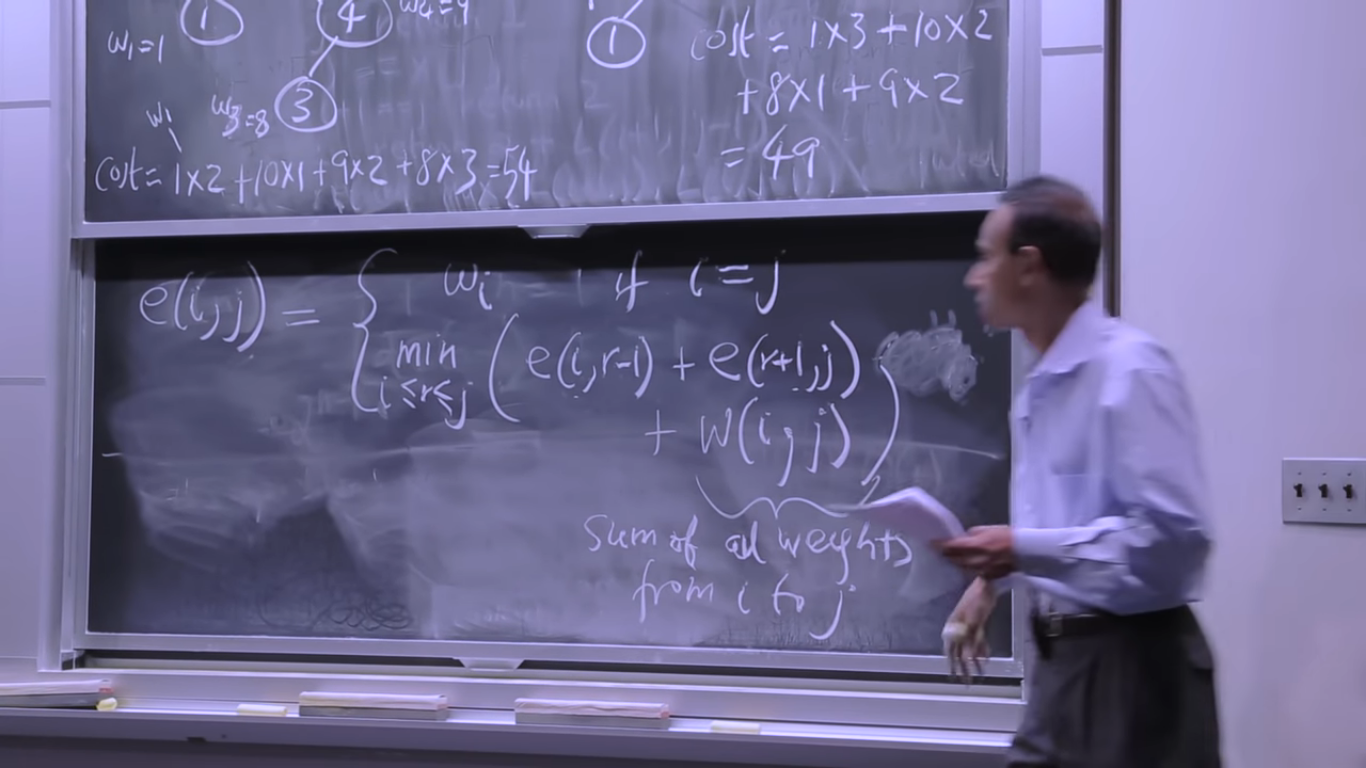 w1=1
1
4
w2=9
w3=8
3
w1
cost = 1x2 +10x1+9x2 +8x3 =54
1
cost = 1x3 +10x2
+8x1 + 9x2
= 49
e(i,j) = { wi if i=j
min i≤r≤j ( e(i,r-1) + e(r+1,j)
+ w(i,j) )
sum of all weights
from i to j